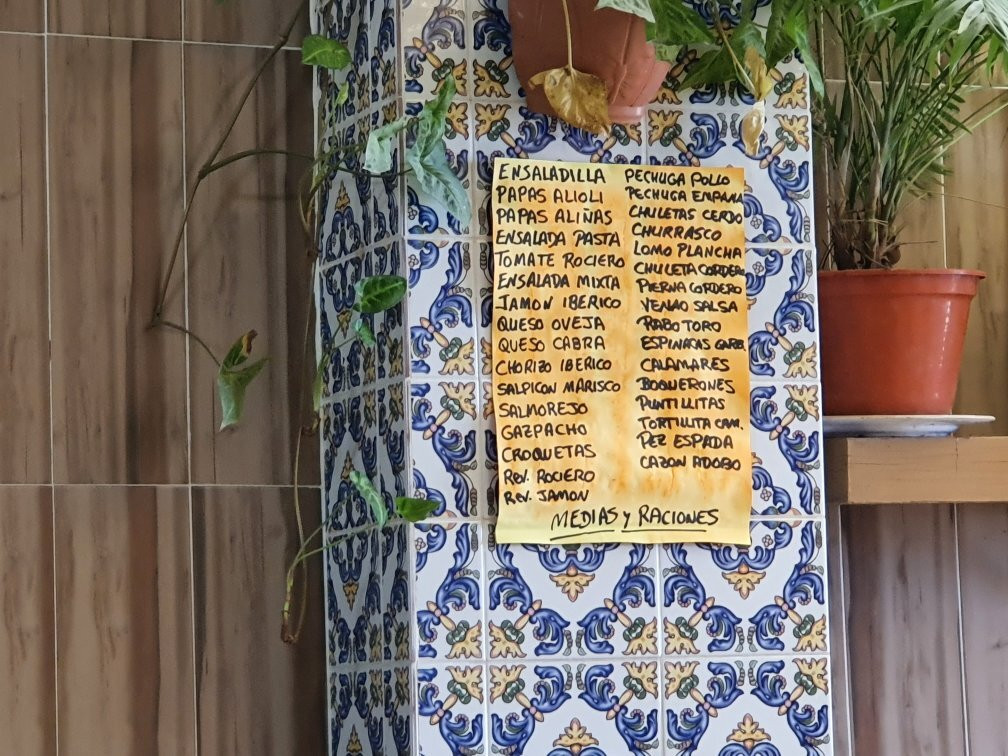 ENSALADILLA
PAPAS ALIOLI
PAPAS ALIÑAS
ENSALADA PASTA
TOMATE ROCIERO
ENSALADA MIXTA
JAMON IBERICO
QUESO OVEJA
QUESO CABRA
CHORIZO IBERICO
SALPICON MARISCO
SALMOREJO
GAZPACHO
CROQUETAS
REV. ROCIERO
REV. JAMON
PECHUGA POLLO
PECHUGA EMPANA
CHULETAS CERDO
CHURRASCO
LOMO PLANCHA
CHULETA CORDERO
PIERNA CORDERO
VENAO SALSA
RABO TORO
ESPINACAS GARB.
CALAMARES
BOQUERONES
PUNTILLITAS
TORTILLITA CAM.
PEZ ESPADA
CAZON ADOBO
MEDIAS Y RACIONES